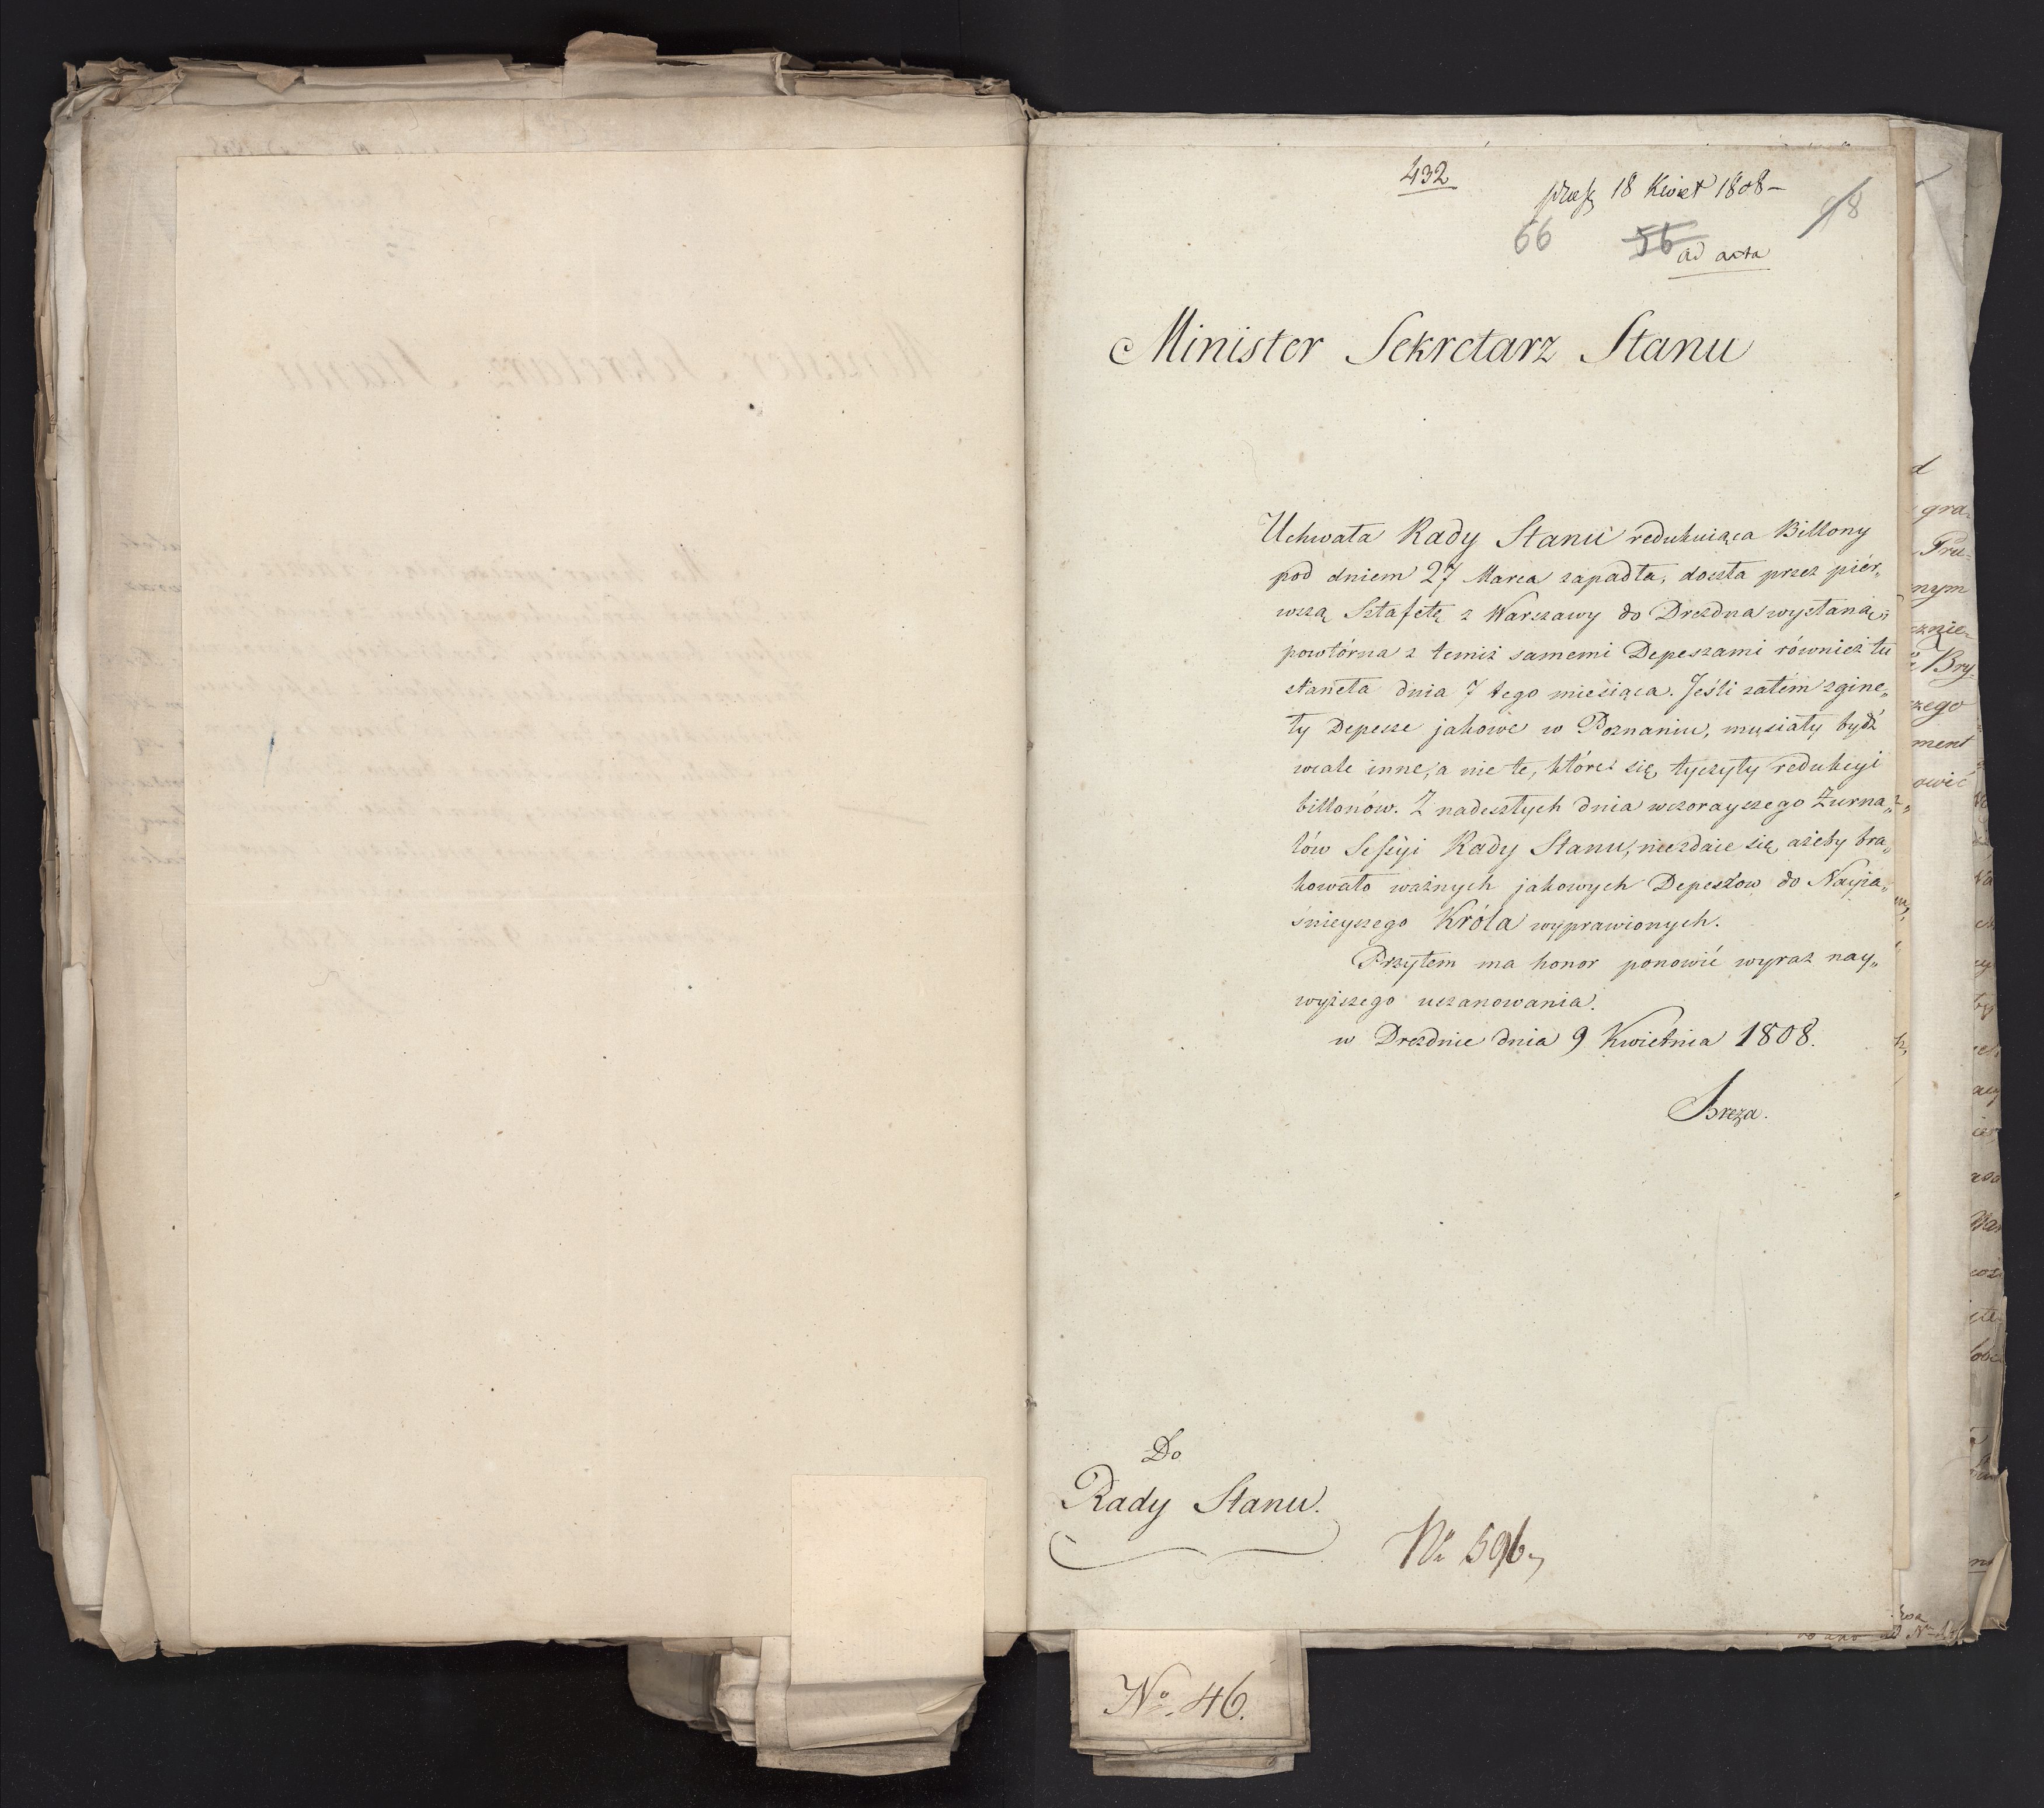 432
praes 18 Kwiet 1808 –
66 56 18
ad acta
Minister Sekretarz Stanu
Uchwała Rady Stanu redukuiąca Billony
pod dniem 27 Marca zapadła, doszła przez piér„
wszą Sztafetę z Warszawy do Drezdna wysłaną,
powtórna z temiż samemi Depeszami również tu
stanęła dnia 7 tego miesiąca. Jeśli zatém zginę„
ły Depesze jakowe w Poznaniu, musiały bydź
wcale inne, a nie te, które się tyczyły redukcyi
billonów. Z nadeszłych dnia wczorayszego Żurna„
łów Sessyi Rady Stanu, niezdaie się, ażeby bra„
kowało ważnych jakowych Depeszow do Nayja„
śnieyszego Króla wyprawionych.
Przytem ma honor ponowić wyraz nay„
wyższego uszanowania.
w Dreznie dnia 9 Kwietnia 1808.
Breza.
Do
Rady Stanu.
No 596
No. 46.
gra„
Pru„
nym
cznie„
Bry„
zego
ment
owić